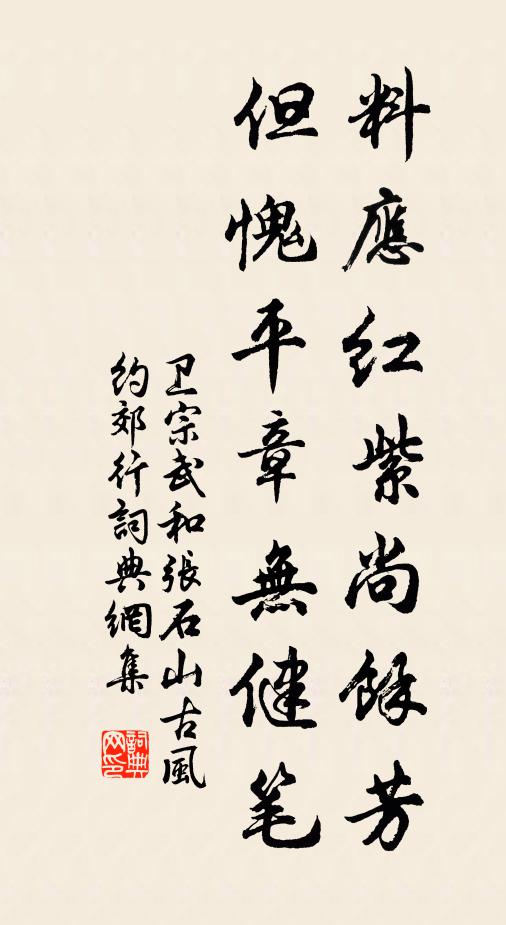 料應紅紫尚餘芳
但愧平章無健笔
卫宗武和張石山古風
約郊行詞典網集
詞典网印